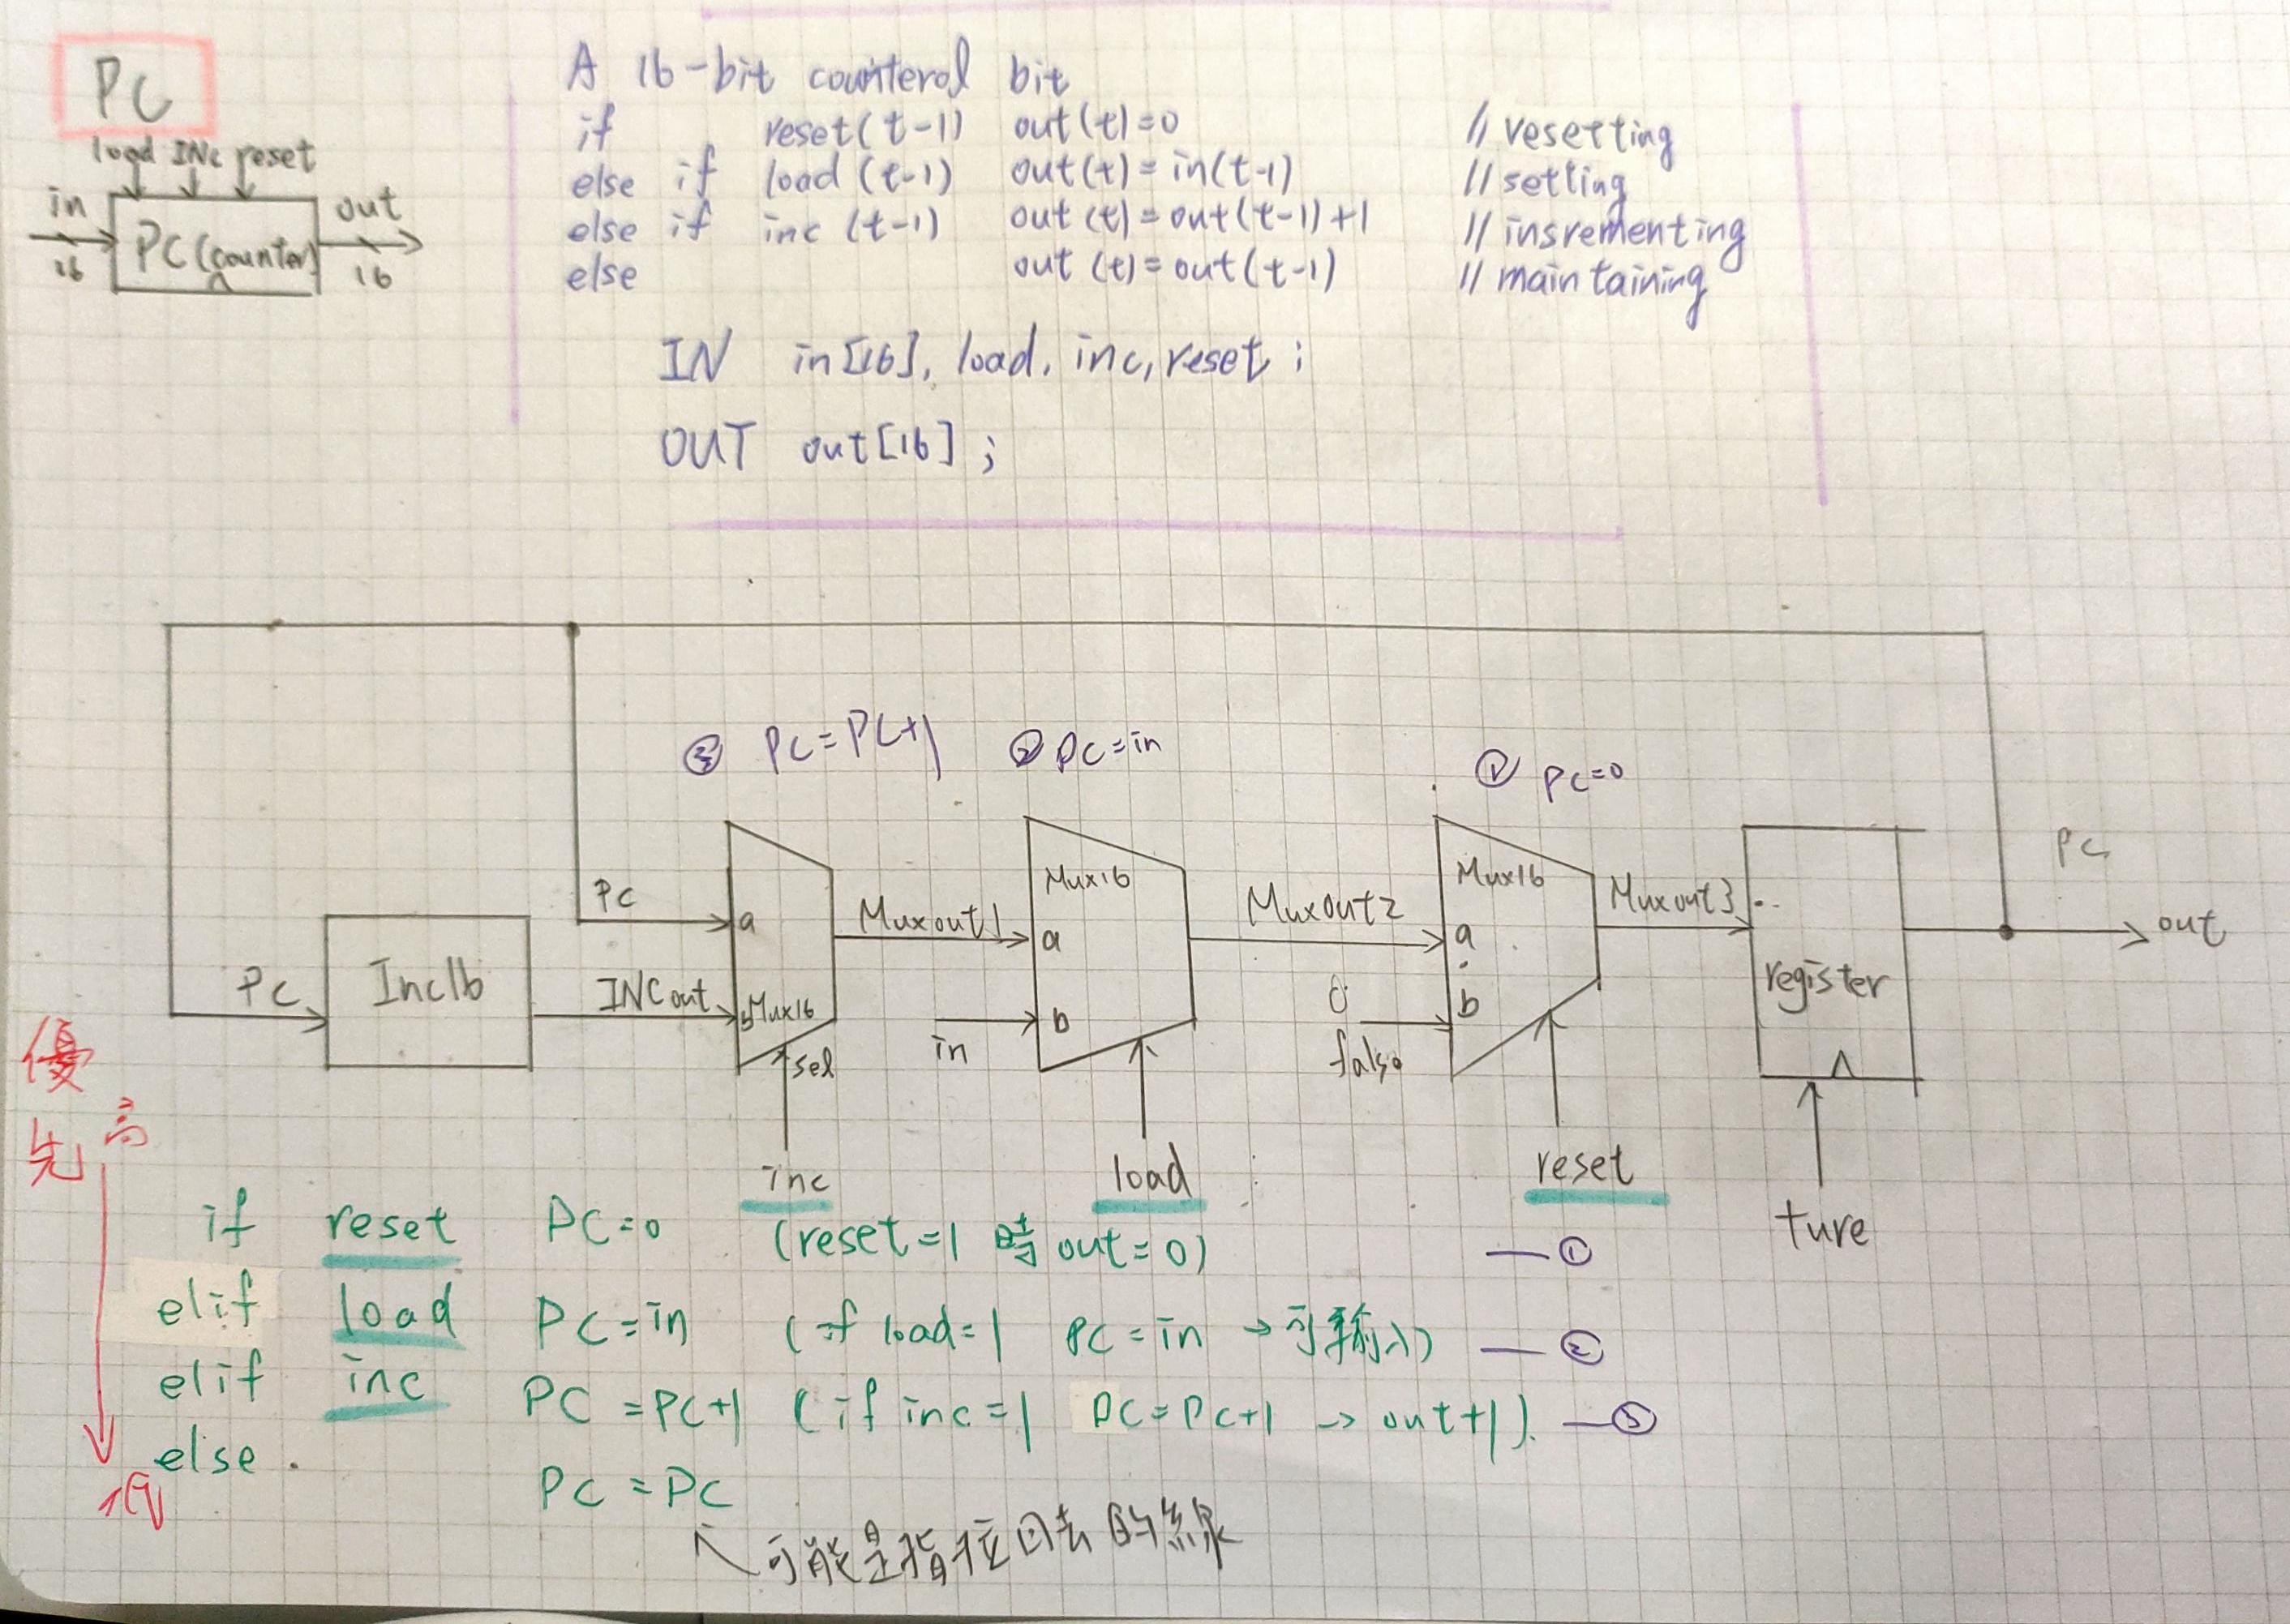 PC
load INc reset
in
16
PC(counter)
out
16
A 16-bit counterol bit
if reset(t-1) out(t)=0 // resetting
else if load (t-1) out(t)=in(t-1) // setling
else if inc (t-1) out (t)=out(t-1)+1 // insrementing
else out (t)=out(t-1) // maintaining
IN in[16], load, inc, reset ;
OUT out[16] ;
③ PC=PC+1
② PC=in
① PC=0
PC
Inc16
PC
INCout
a
b
Mux16
sel
inc
Muxout1
Mux16
a
b
in
load
Muxout2
0
false
Mux16
a
b
reset
Muxout3
register
ture
PC
out
優先
高
低
if reset PC=0 (reset=1 時 out=0) —①
elif load PC=in (if load=1 PC=in → 可輸入) —②
elif inc PC=PC+1 (if inc=1 PC=PC+1 → out+1). —③
else. PC=PC
可能是指拉回去的線